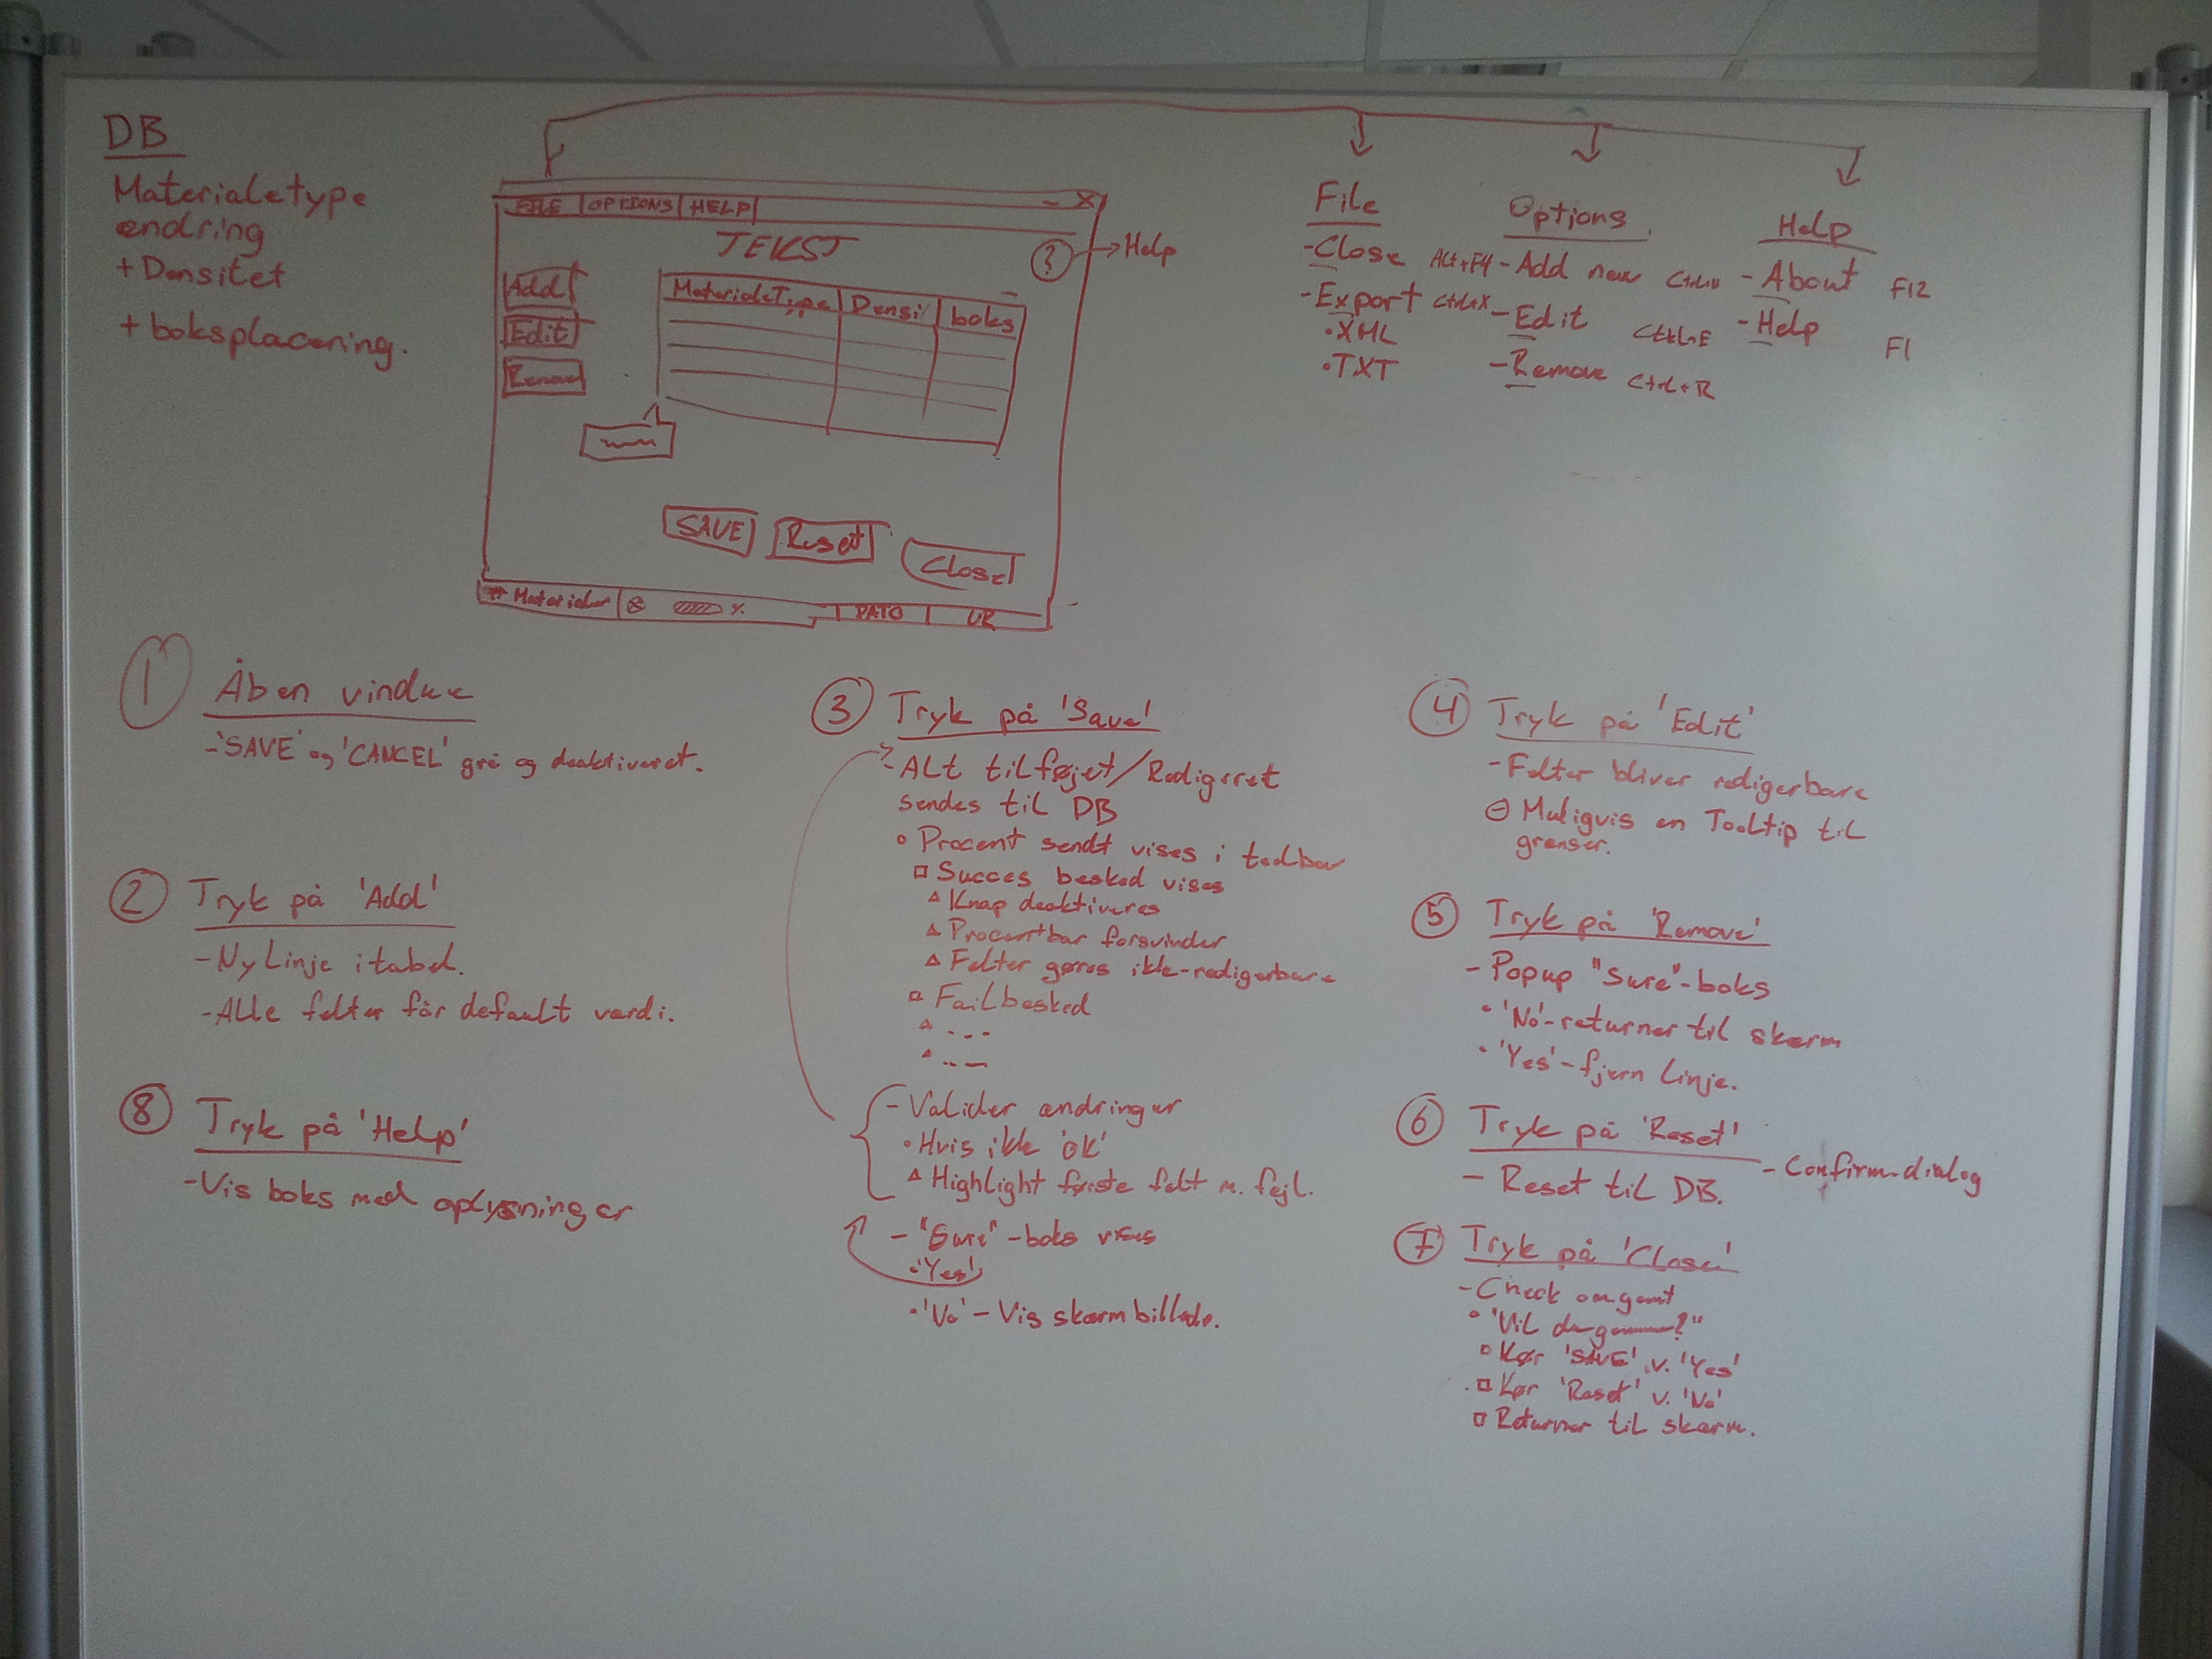 DB
Materialetype
ændring
+ Densitet
+ boksplacering.
FILE | OPTIONS | HELP |
- X
TEKST
? → Help
Add
Edit
Remove
MaterialeType | Densi | boks
SAVE
Reset
Close
# Materialer
%
DATO
UR
File
- Close Alt+F4
- Export Ctrl+X
• XML
• TXT
Options
- Add new Ctrl+N
- Edit Ctrl+E
- Remove Ctrl+R
Help
- About F12
- Help F1
1 Åben vindue
- 'SAVE' og 'CANCEL' grå og deaktiveret.
2 Tryk på 'Add'
- Ny linje i tabel.
- Alle felter får default værdi.
8 Tryk på 'Help'
- Vis boks med oplysninger
3 Tryk på 'Save'
- Alt tilføjet/Redigeret
sendes til DB
Procent sendt vises i toolbar
Succes besked vises
Knap deaktiveres
Procentbar forsvinder
Felter gøres ikke-redigerbare
Failbesked
- Valider ændringer
• Hvis ikke 'OK'
Highlight første felt m. fejl.
- "Sure"-boks vises
• 'Yes'
• 'No' - Vis skærmbillede.
4 Tryk på 'Edit'
- Felter bliver redigerbare
Muligvis en Tooltip til
grænser.
5 Tryk på 'Remove'
- Popup "Sure"-boks
• 'No' - returner til skærm
• 'Yes' - fjern linje.
6 Tryk på 'Reset'
- Reset til DB.
- Confirm-dialog
7 Tryk på 'Close'
- Check om gemt
• "Vil du gemme?"
Kør 'SAVE' v. 'Yes'
Kør 'Reset' v. 'No'
Returner til skærm.